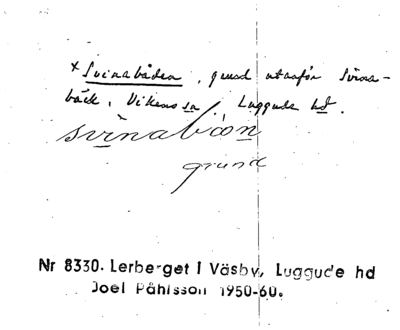 × Svinabåden, grund utanför Svina-
bäck, Vikens sn, Luggude hd.
svinabåɷn
grund
Nr 8330. Lerberget i Väsby, Luggude hd
Joel Påhlsson 1950-60.